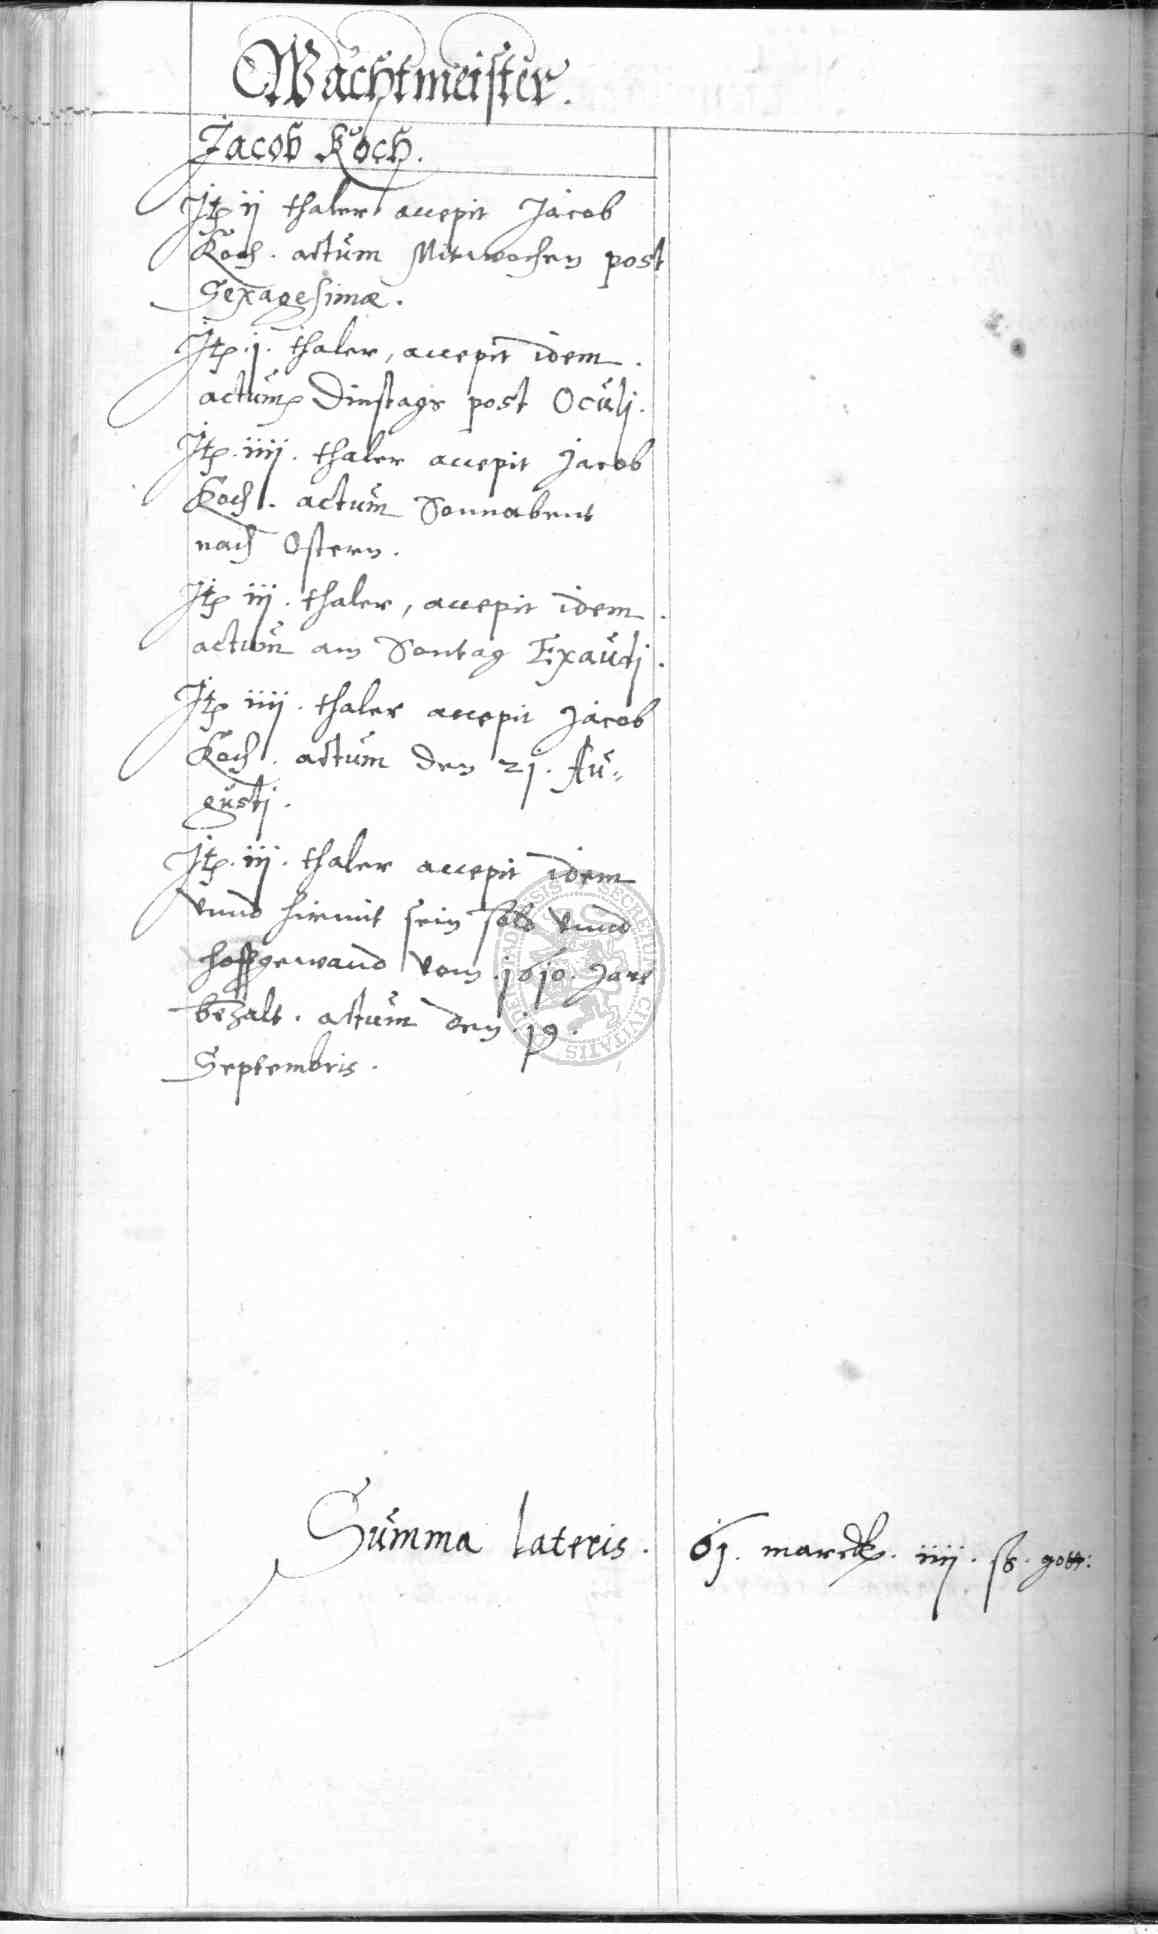 Wachtmeister.
Jacob Koch.
Jtꝫ ij thaler accepit Jacob
Koch. actum Mitwochen post
Sexagesimæ.
Jtꝫ. j. thaler, accepit idem.
actum Dinstags post Oculj.
Jtꝫ. iiij. thaler accepit Jacob
Koch. actum Sonnabent
nach Ostern.
Jtꝫ iij. thaler, accepit idem.
actum am Sontag Exaudj.
Jtꝫ iiij. thaler accepit Jacob
Koch. actum den 21. Au-
gustj.
Jtꝫ. iij. thaler accepit idem
vnnd hirmit sein sold vnnd
hoffgewand vom .1610. Jare
bezalt. actum den .19.
Septembris.
Summa lateris. 61. marck. iiij. ß. gott:
SECRETUM CIVITATIS